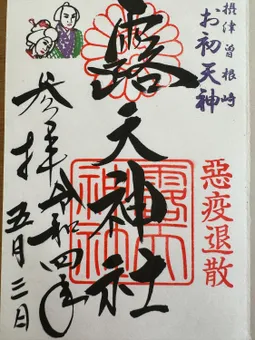 摂津曽根崎
お初天神
露天神社
惡疫退散
露天
神社
参拝
令和四年
五月三日